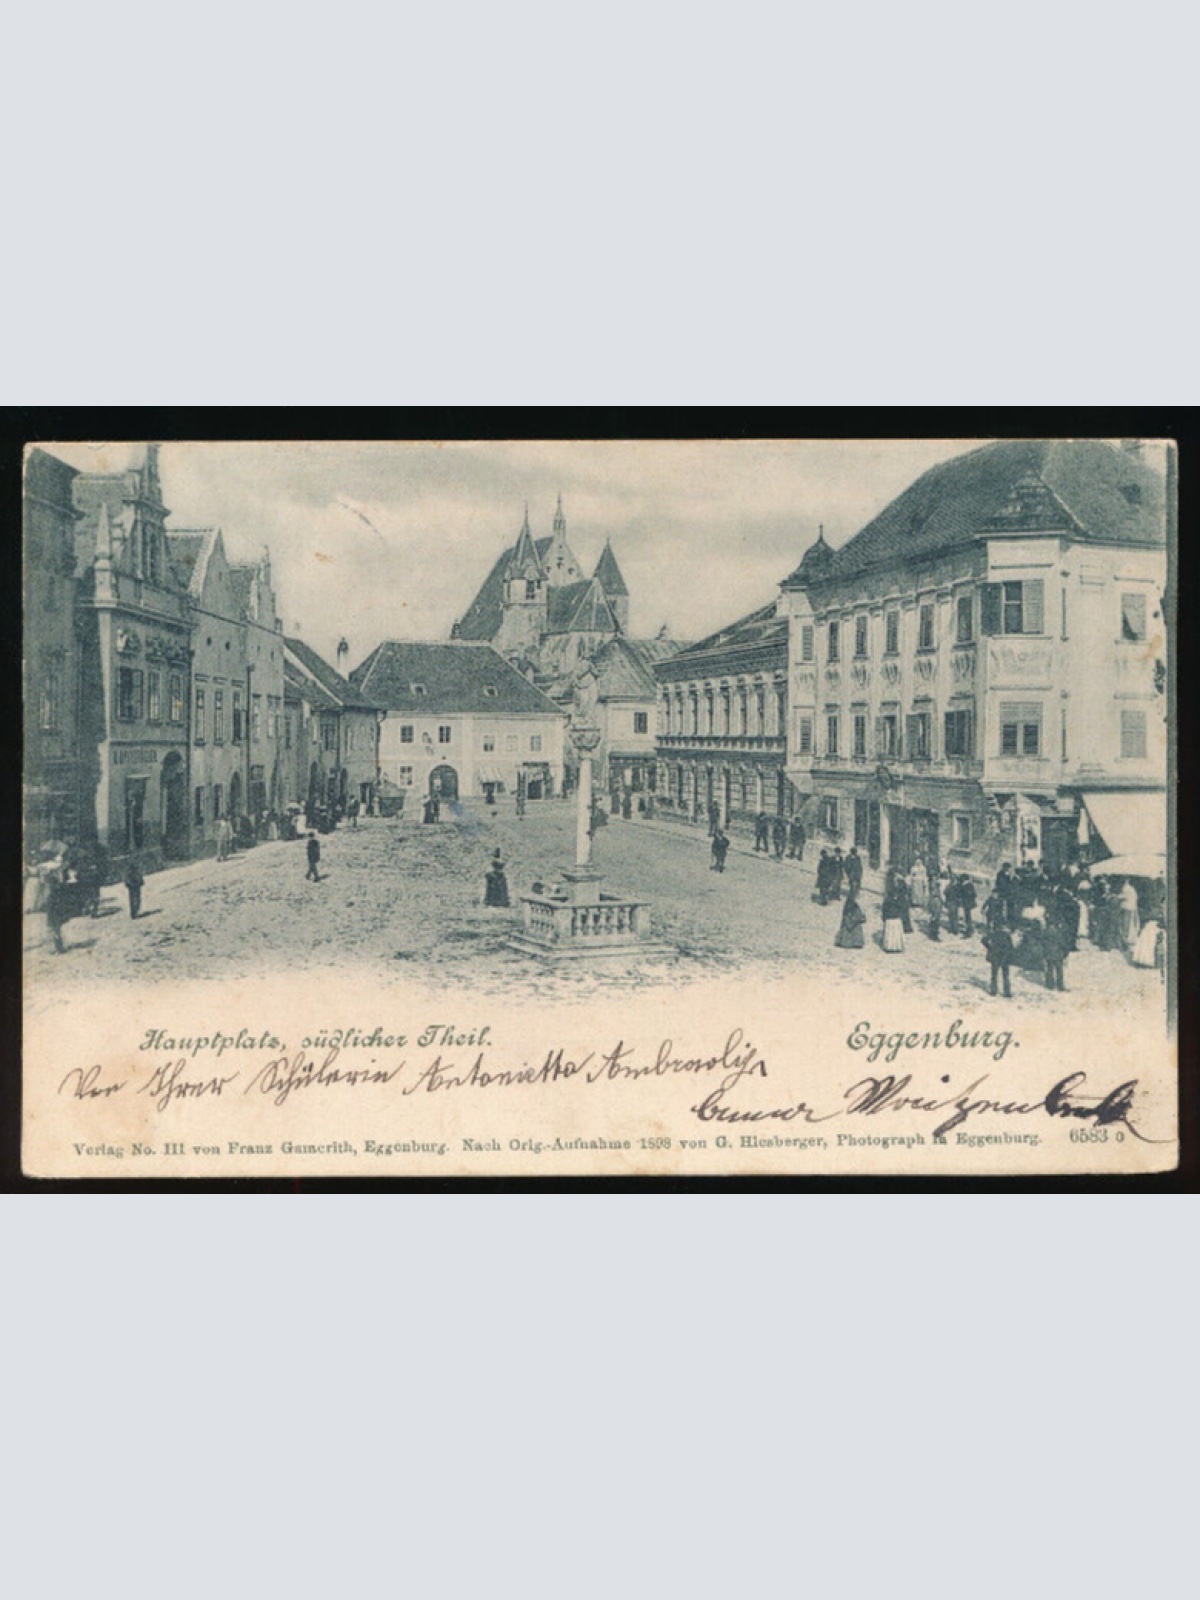 Hauptplatz, südlicher Theil.
Eggenburg.
Von Ihrer Schülerin Antonietta
Verlag No. III von Franz Gamerith, Eggenburg. Nach Orig.-Aufnahme 1898 von G. Hiesberger, Photograph in Eggenburg. 6583 o